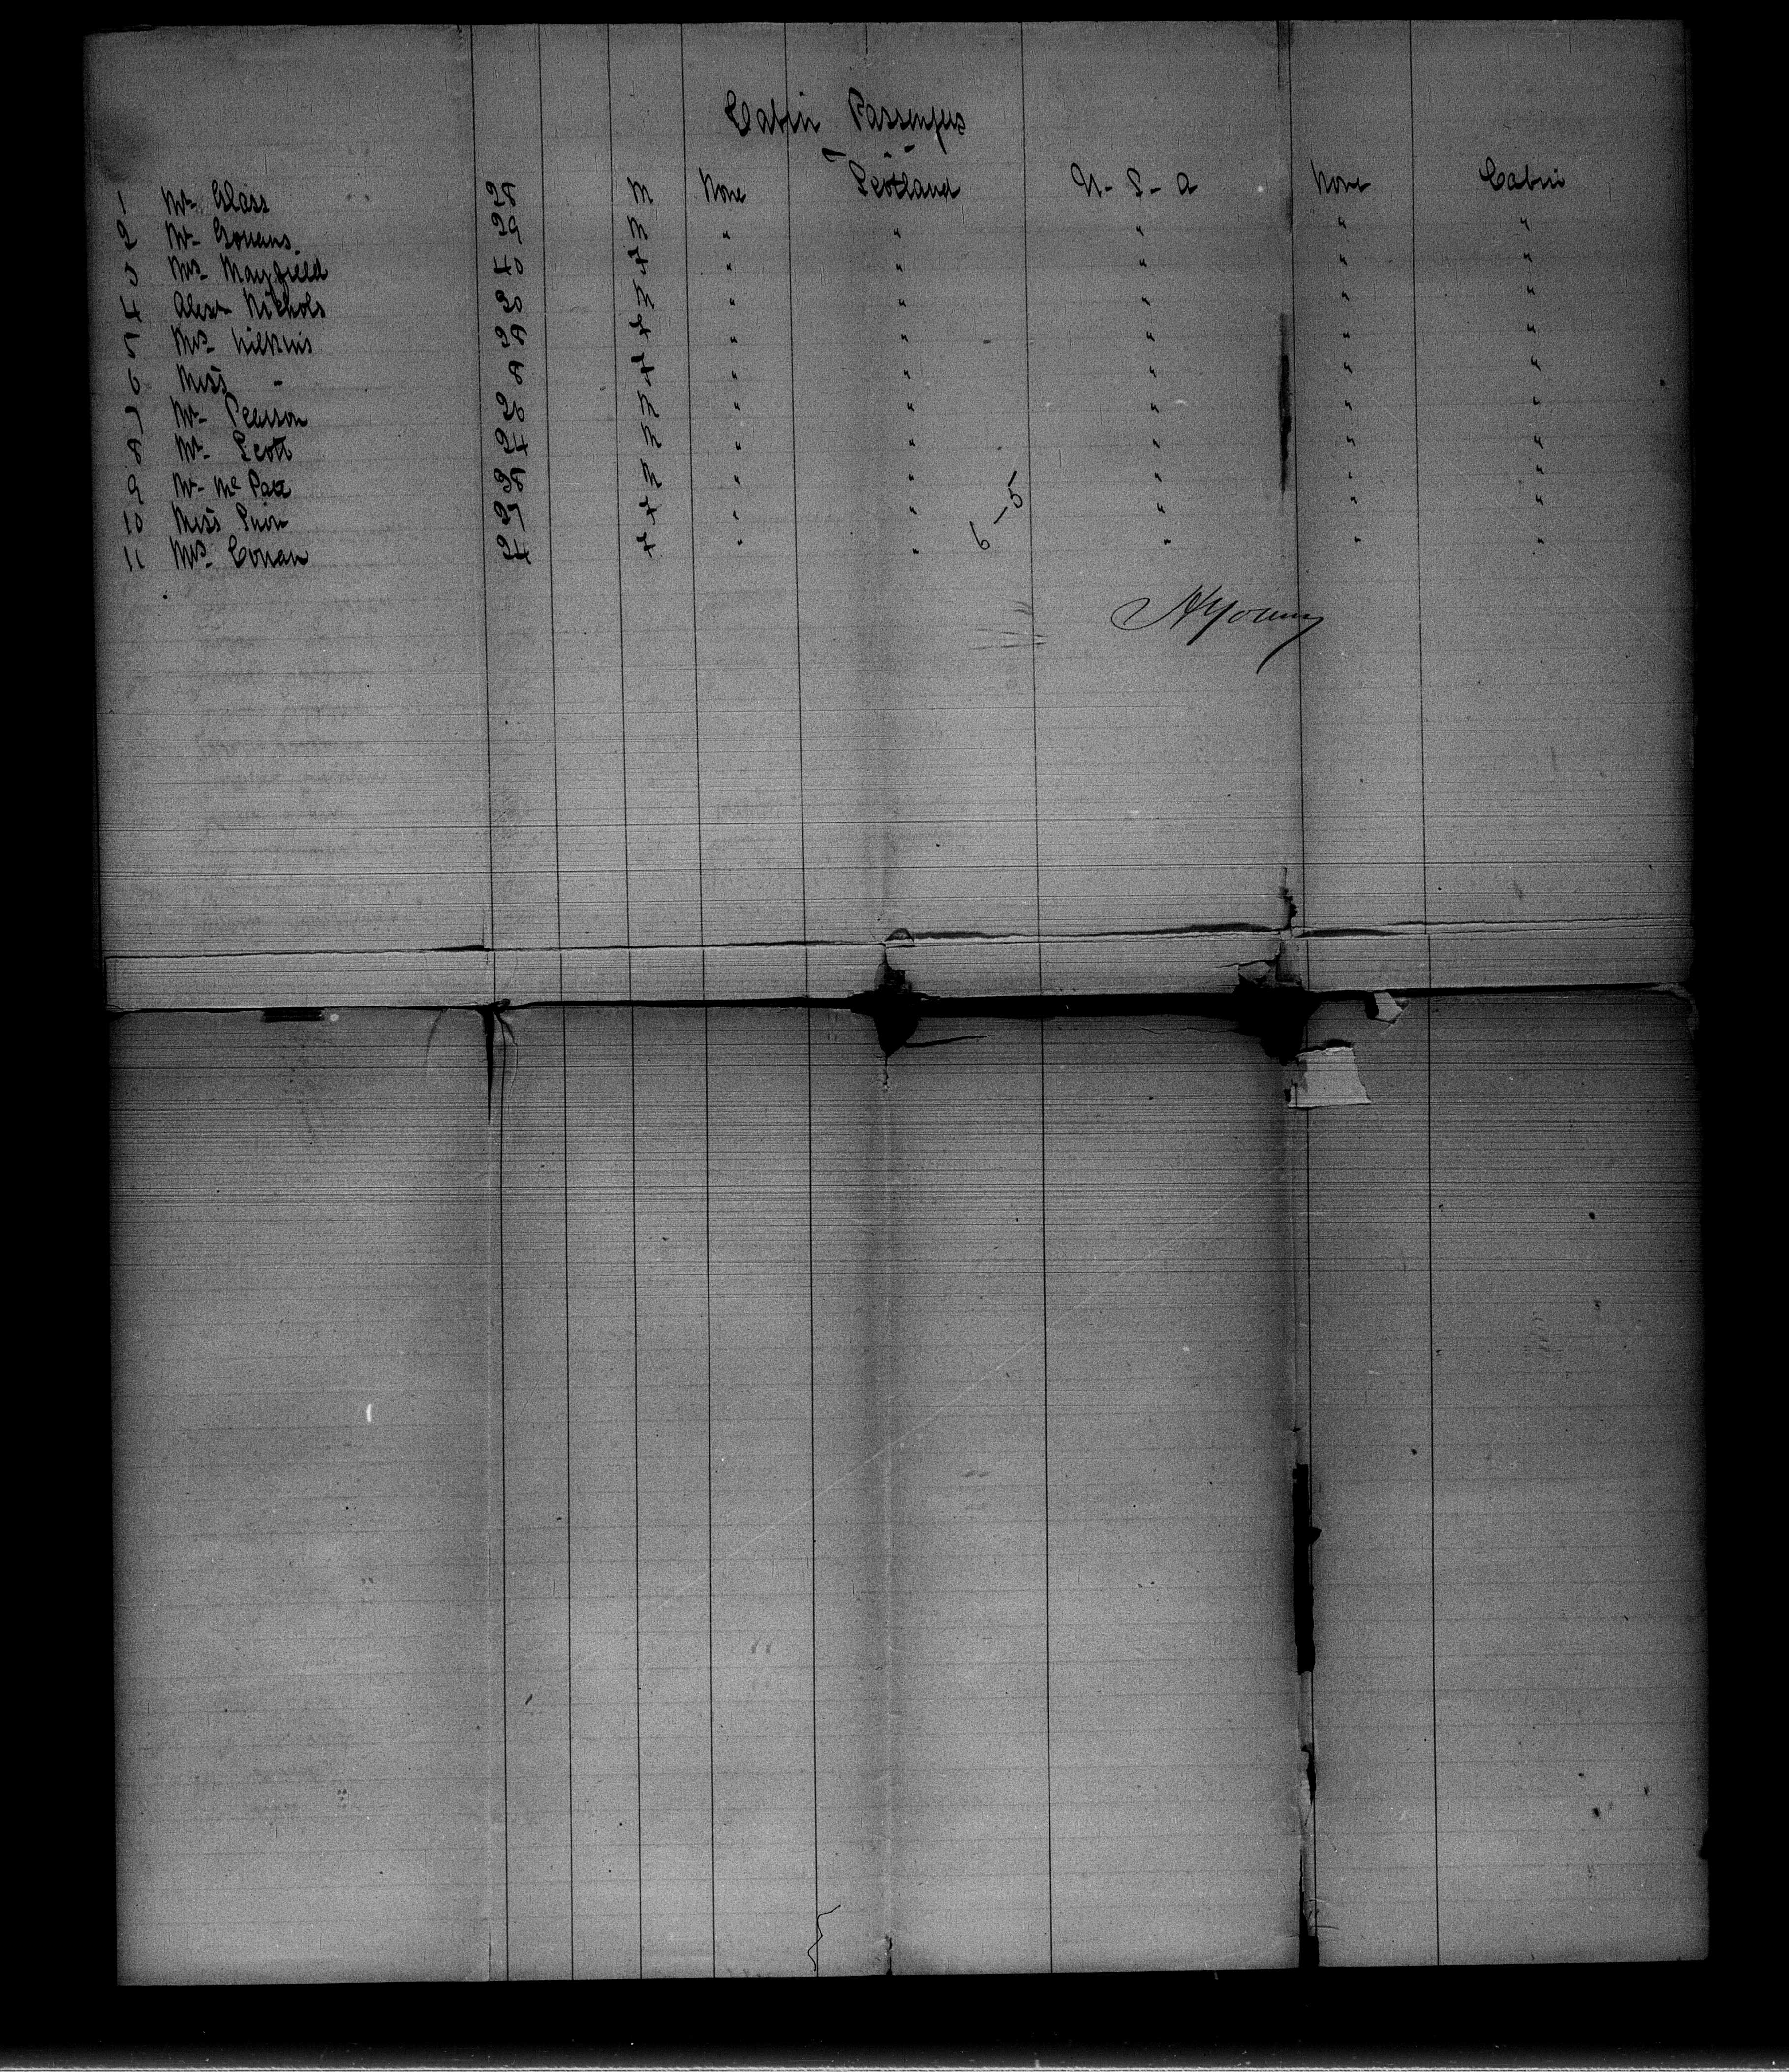 Cabin Passengers
1 Mr Glass 28 M None Scotland U-S-A None Cabin
2 Mr Gowans 29 M " " " " "
3 Mrs Mayfield 40 F " " " " "
4 Alexr Nichols 20 M " " " " "
5 Mrs Wilkins 28 F " " " " "
6 Miss - 8 F " " " " "
7 Mr Pearson 20 M " " " " "
8 Mr Scott 24 M " " " " "
9 Mr Mc 28 M " " " " "
10 Miss 27 F " " " " "
11 Mrs Cowan 24 F " " " " "
6-5
AYoung